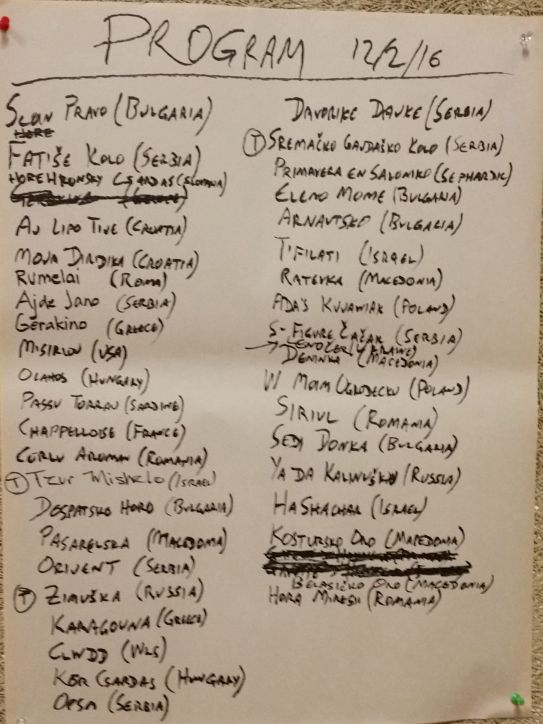 PROGRAM 12/2/16
SLOW PRAVO (BULGARIA)
FATIŠE KOLO (SERBIA)
HOREHRONSKY CSARDAS (SLOVAKIA)
AJ LIPO TIJE (CROATIA)
MOJA DIRIDIKA (CROATIA)
RUMELAI (ROMA)
AJDE JANO (SERBIA)
GERAKINO (GREECE)
MISIRLOU (USA)
OLAHOS (HUNGARY)
PASSU TORRAU (SARDINE)
CHAPPELLOISE (FRANCE)
CERLU AROMAN (ROMANIA)
T TZUR MISHELO (ISRAEL)
DOSPATSKO HORO (BULGARIA)
PASARELSKA (MACEDONIA)
ORIJENT (SERBIA)
T ZIMUŠKA (RUSSIA)
KARAGOUNA (GREECE)
CLWDD (WLS)
KÉR CSARDAS (HUNGARY)
OPSA (SERBIA)
DAVORIKE DAVKE (SERBIA)
T SREMAČKO GAJDAŠKO KOLO (SERBIA)
PRIMAVERA EN SALONIKO (SEPHARDIC)
ELENO MOME (BULGARIA)
ARNAUTSKO (BULGARIA)
T'FILATI (ISRAEL)
RATEVKA (MACEDONIA)
ADA'S KUJAWIAK (POLAND)
5-FIGURE ČAČAK (SERBIA)
DENINKA (MACEDONIA)
W MOIM OGRODECKU (POLAND)
SIRIUL (ROMANIA)
SEDI DONKA (BULGARIA)
YA DA KALINUŠKU (RUSSIA)
HASHACHAR (ISRAEL)
KOSTURSKO ORO (MACEDONIA)
BELASIČKO ORO (MACEDONIA)
HORA MIRESII (ROMANIA)